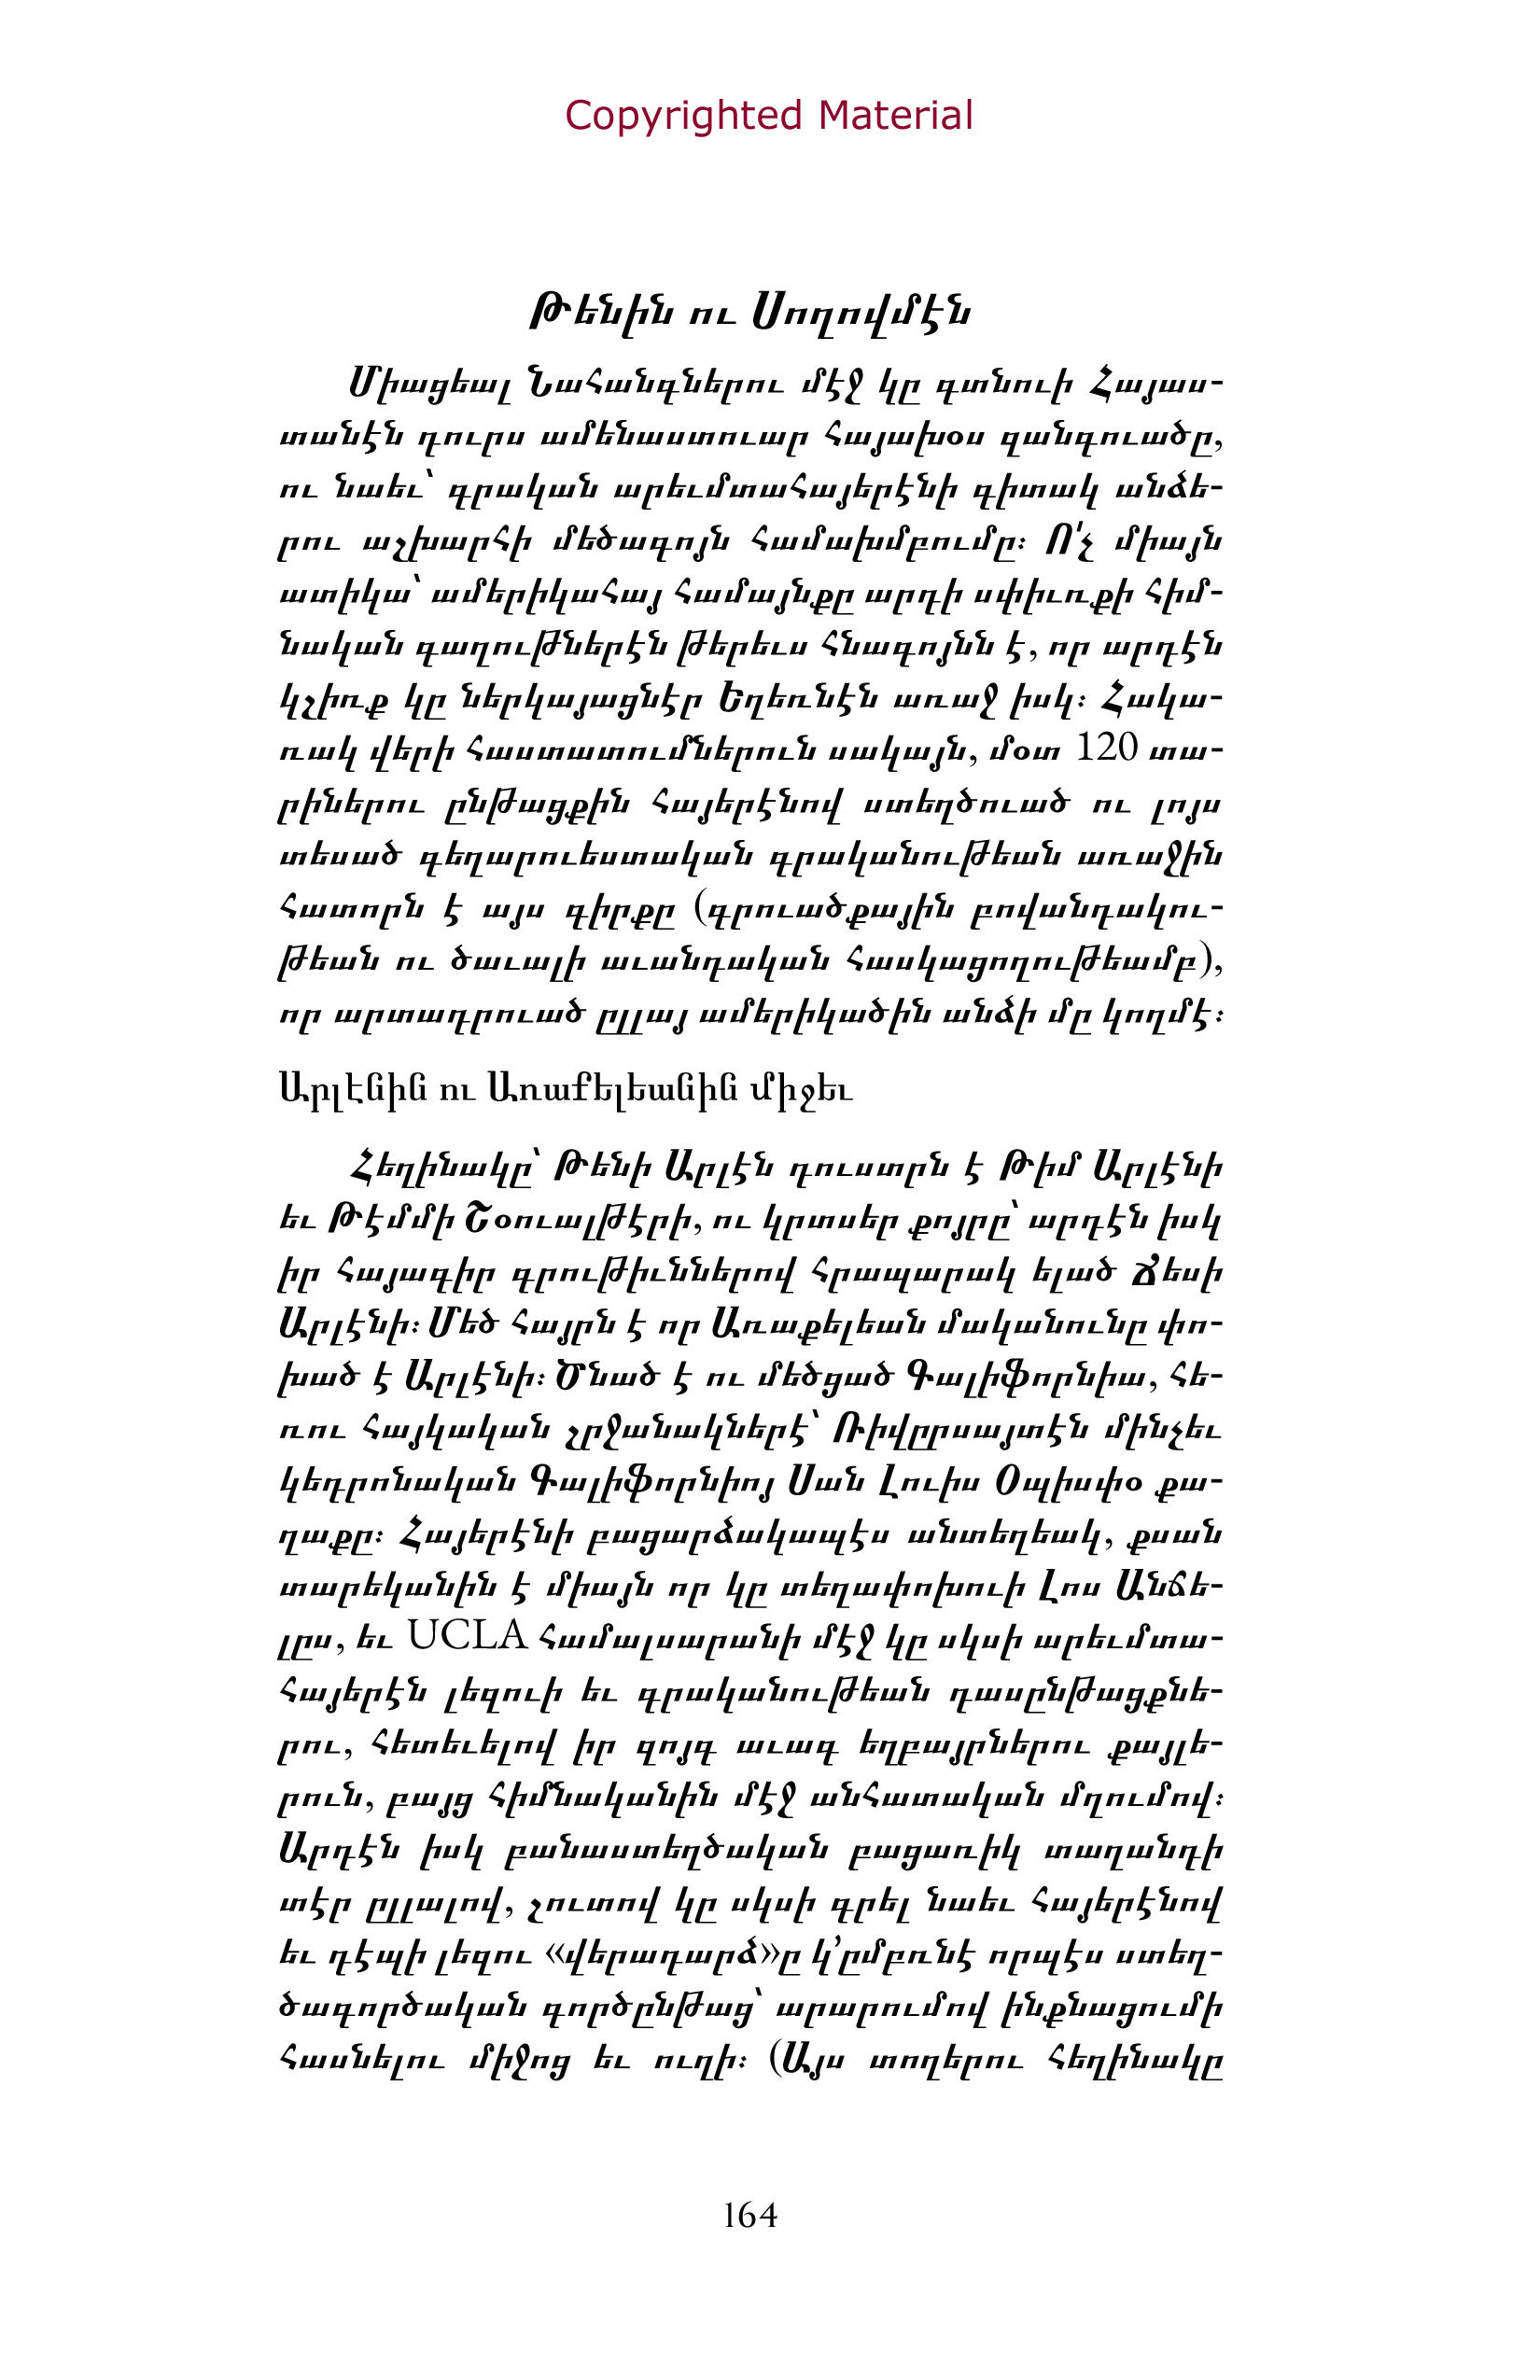 Copyrighted Material
Թենին ու Սողովմէն
Միացեալ Նահանգներու մէջ կը գտնուի Հայաս-
տանէն դուրս ամենաստուար հայախօս զանգուածը,
ու նաեւ՝ գրական արեւմտահայերէնի գիտակ անձե-
րու աշխարհի մեծագոյն համախմբումը։ Ո՛չ միայն
ատիկա՝ ամերիկահայ համայնքը արդի սփիւռքի հիմ-
նական գաղութներէն թերեւս հնագոյնն է, որ արդէն
կշիռք կը ներկայացնէր Եղեռնէն առաջ իսկ։ Հակա-
ռակ վերի հաստատումներուն սակայն, մօտ 120 տա-
րիներու ընթացքին հայերէնով ստեղծուած ու լոյս
տեսած գեղարուեստական գրականութեան առաջին
հատորն է այս գիրքը (գրուածքային բովանդակու-
թեան ու ծաւալի աւանդական հասկացողութեամբ),
որ արտադրուած ըլլայ ամերիկածին անձի մը կողմէ։
Արլէնին ու Առաքելեանին միջեւ
Հեղինակը՝ Թենի Արլէն դուստրն է Թիմ Արլէնի
եւ Թէմմի Շօուալթէրի, ու կրտսեր քոյրը՝ արդէն իսկ
իր հայագիր գրութիւններով հրապարակ ելած Ճեսի
Արլէնի։ Մեծ հայրն է որ Առաքելեան մականունը փո-
խած է Արլէնի։ Ծնած է ու մեծցած Գալիֆորնիա, հե-
ռու հայկական շրջանակներէ՝ Ռիվըրսայտէն մինչեւ
կեդրոնական Գալիֆորնիոյ Սան Լուիս Օպիսփօ քա-
ղաքը։ Հայերէնի բացարձակապէս անտեղեակ, քսան
տարեկանին է միայն որ կը տեղափոխուի Լոս Անճե-
լըս, եւ UCLA համալսարանի մէջ կը սկսի արեւմտա-
հայերէն լեզուի եւ գրականութեան դասընթացքնե-
րու, հետեւելով իր զոյգ աւագ եղբայրներու քայլե-
րուն, բայց հիմնականին մէջ անհատական մղումով։
Արդէն իսկ բանաստեղծական բացառիկ տաղանդի
տէր ըլլալով, շուտով կը սկսի գրել նաեւ հայերէնով
եւ դէպի լեզու «վերադարձ»ը կ՚ըմբռնէ որպէս ստեղ-
ծագործական գործընթաց՝ արարումով ինքնացումի
հասնելու միջոց եւ ուղի։ (Այս տողերու հեղինակը
164